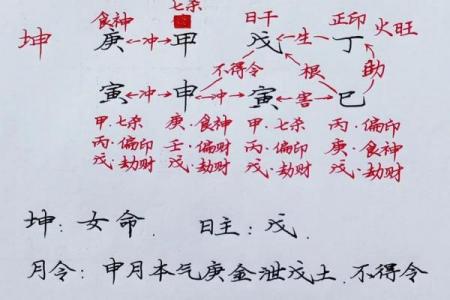 食神 七杀 日干 正印
坤 庚 冲 甲 戊 生 丁 火旺
不得令 根 助
寅 冲 申 冲 寅 害 巳
甲·七杀 庚·食神 甲·七杀 丙·偏印
丙·偏印 壬·偏财 丙·偏印 庚·食神
戊·劫财 戊·劫财 戊·劫财 戊·劫财
坤：女命. 日主：戊.
月令：申月本气庚金泄戊土.不得令